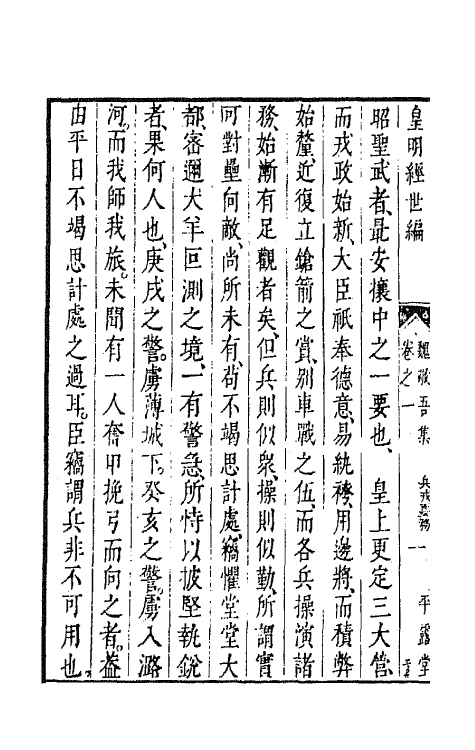 皇明經世編
魏敬吾集
卷之一
兵戎要務
一
平露堂
昭聖武者、最安攘中之一要也、　皇上更定三大營、
而戎政始新、大臣祇奉德意、易統轄、用邊將、而積弊
始釐、近復立鎗箭之賞、別車戰之伍、而各兵操演諸
務、始漸有足觀者矣、但兵則似衆、操則似勤、所謂實
可對壘向敵、尚所未有、苟不竭思計處、竊懼堂堂大
都、密邇犬羊叵測之境、一有警急、所恃以披堅執銳
者、果何人也、庚戌之警、虜薄城下。癸亥之警、虜入潞
河。而我師我旅。未聞有一人奮甲挽弓而向之者。葢
由平日不竭思計處之過耳。臣竊謂兵非不可用也、